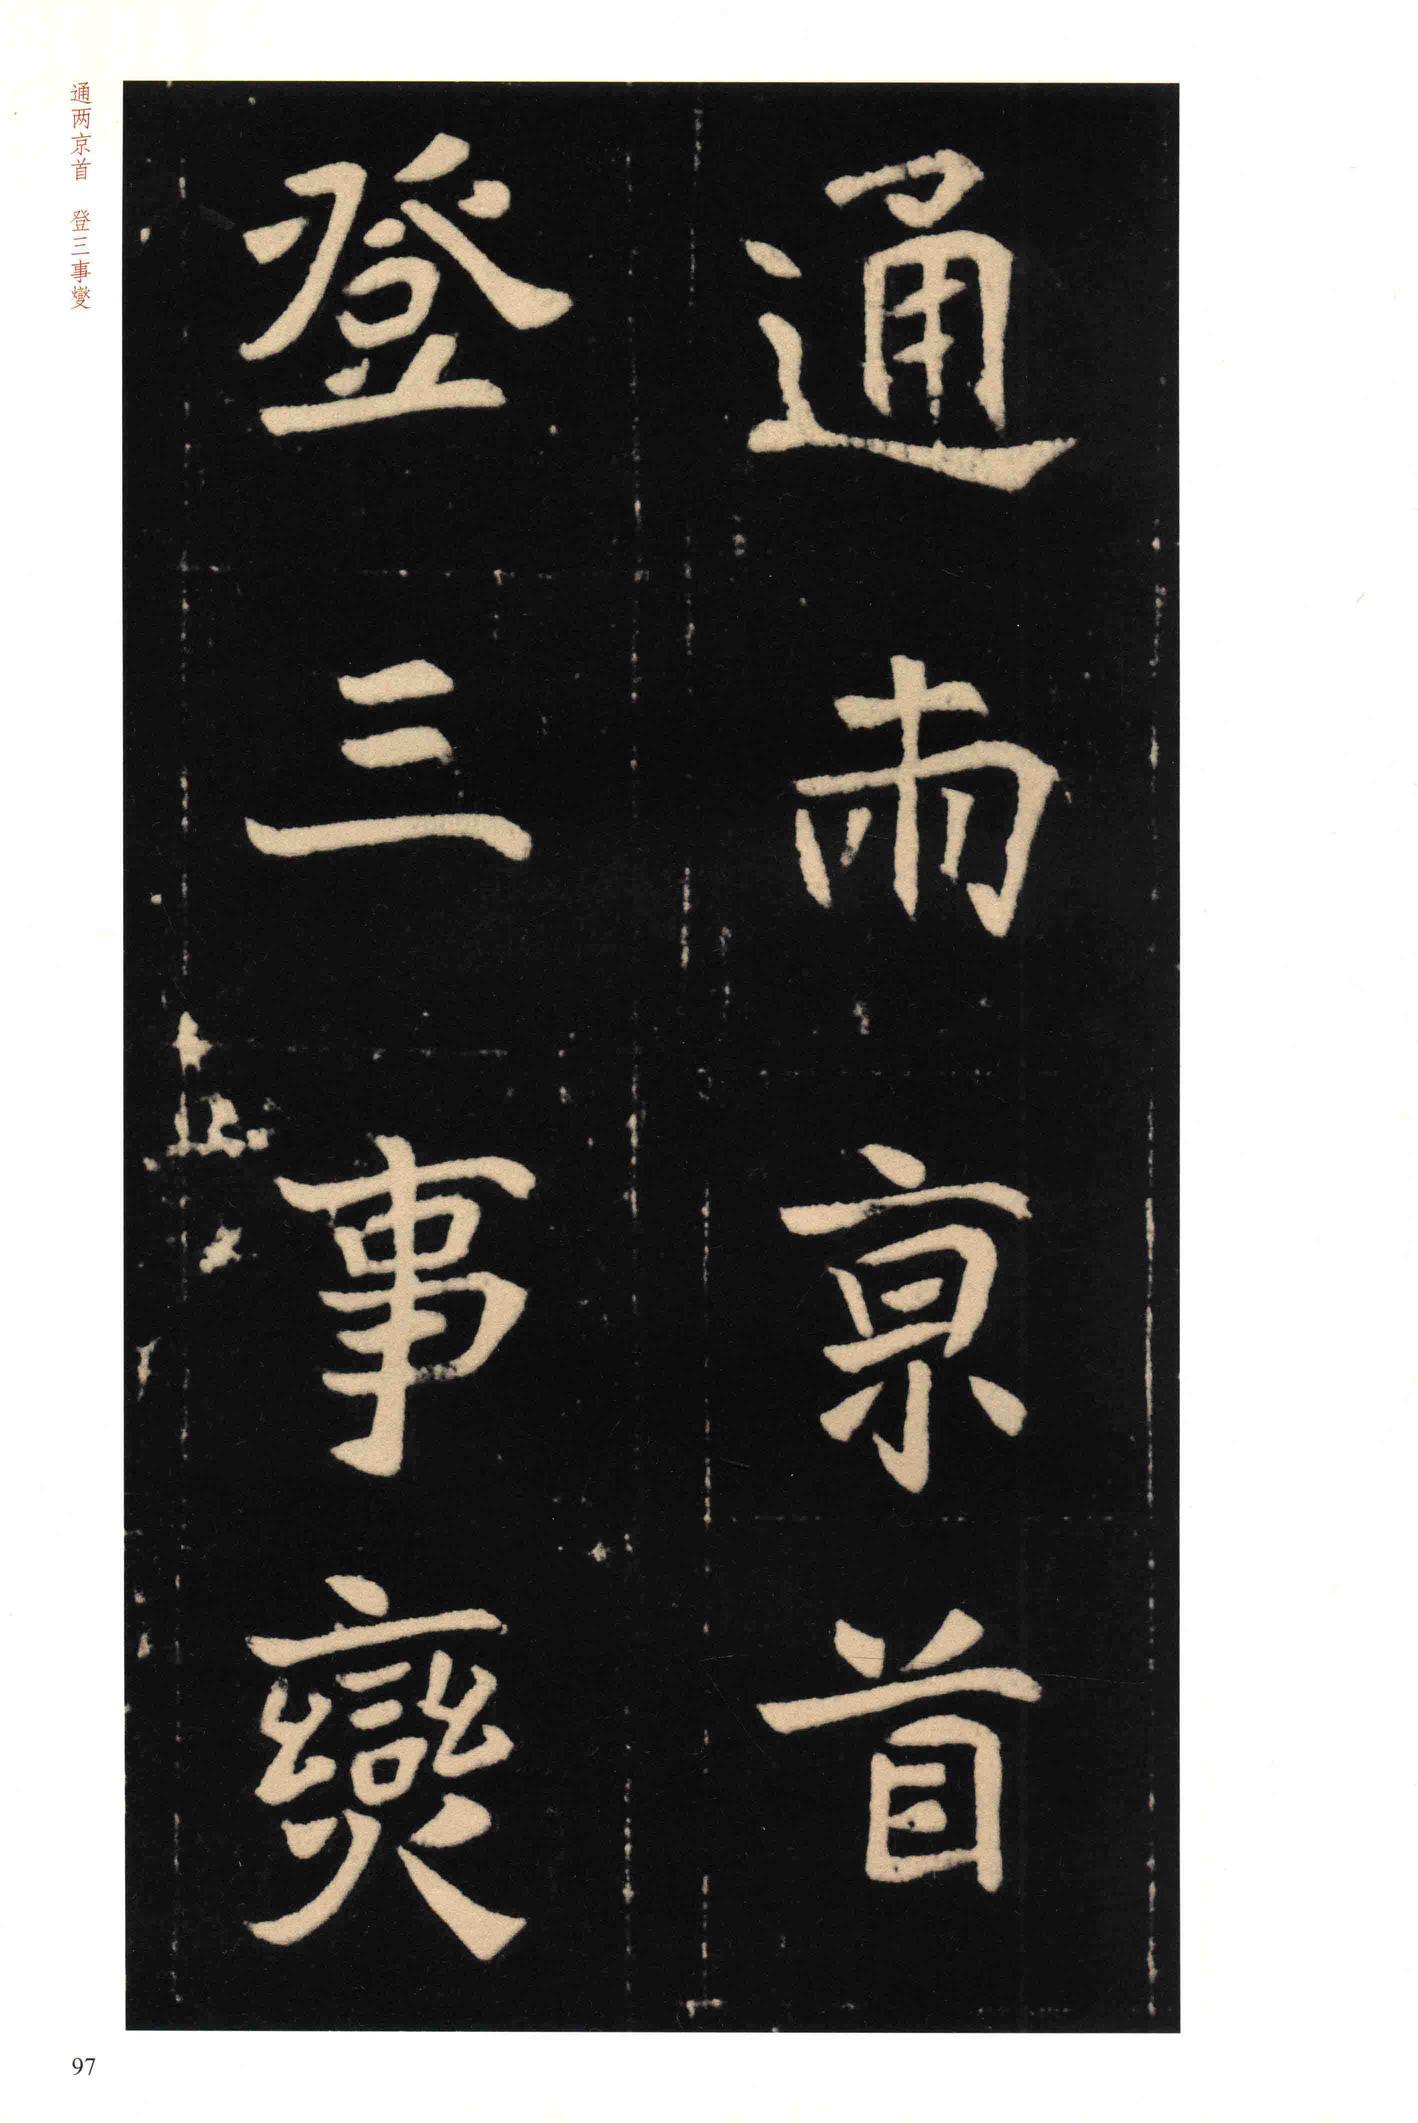 通兩京首
登三事燮
通两京首 登三事燮
97